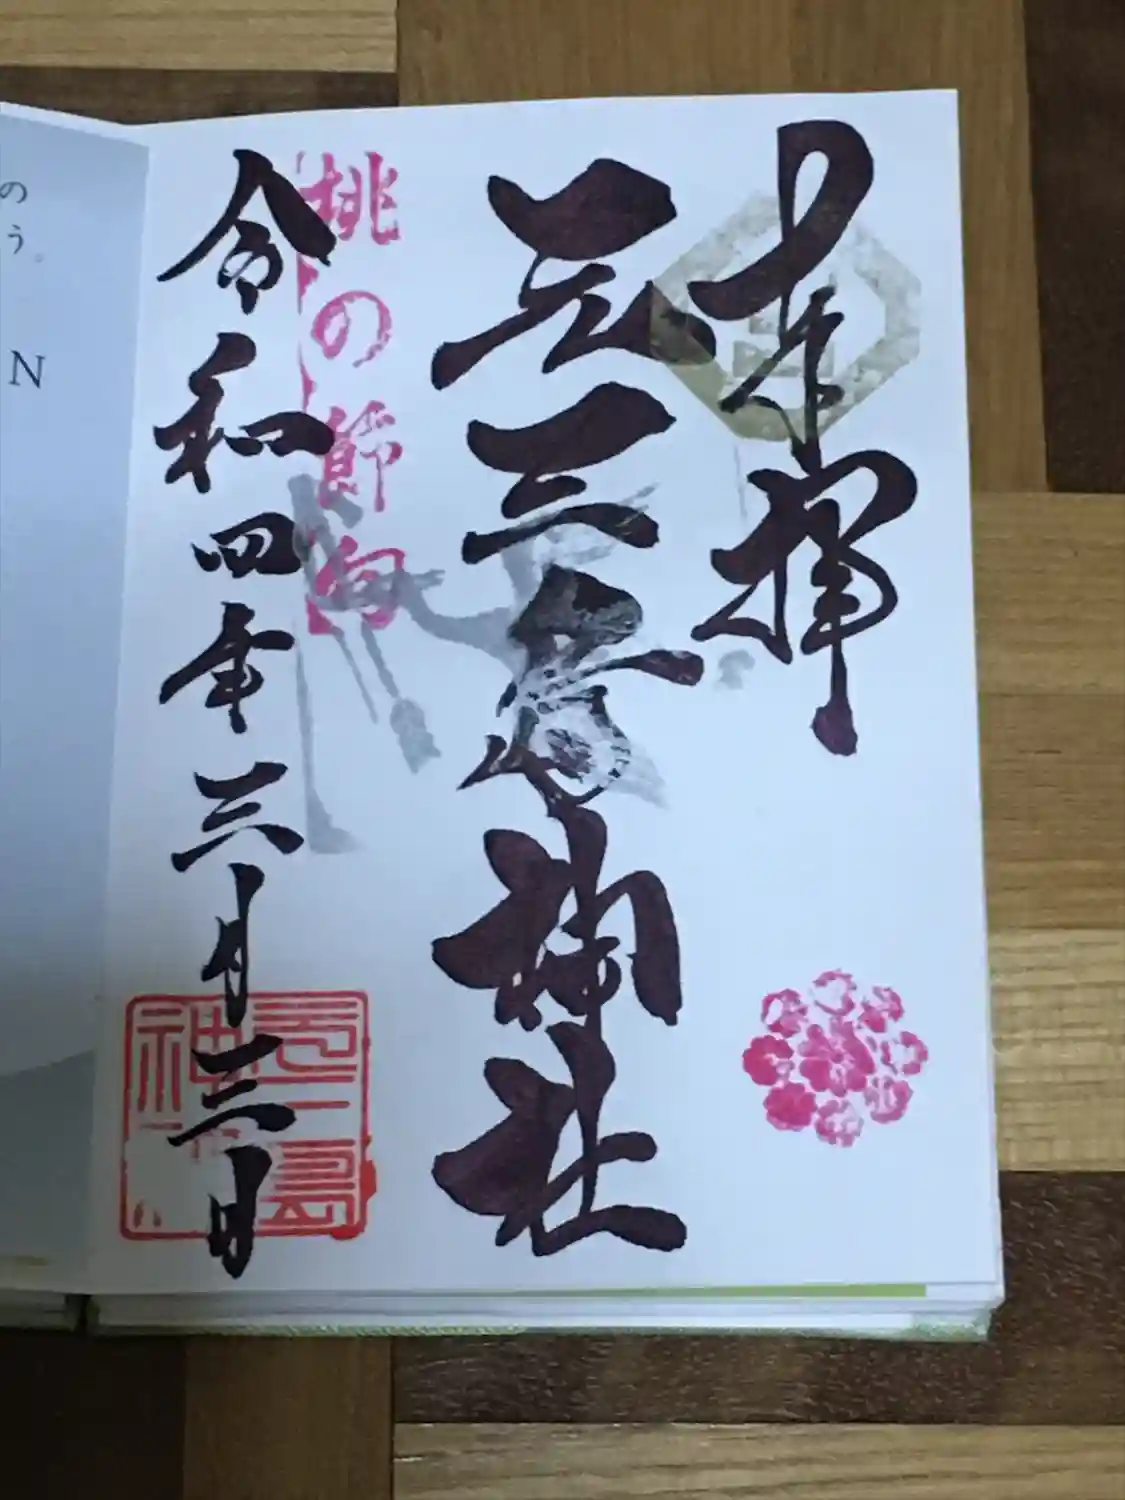 奉拝
元三島神社
桃の節句
令和四年三月三日
の
う。
N